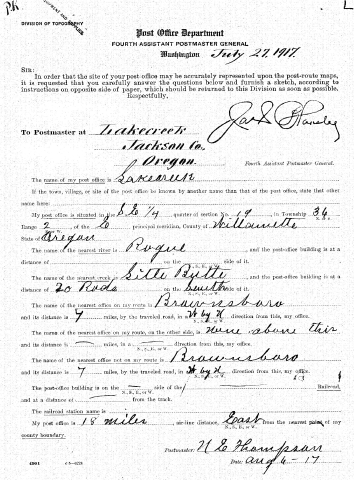 DIVISION OF TOPOGRAPHY
Post Office Department
FOURTH ASSISTANT POSTMASTER GENERAL
Washington July 27, 1917.
SIR:
In order that the site of your post office may be accurately represented upon the post-route maps,
it is requested that you carefully answer the questions below and furnish a sketch, according to
instructions on opposite side of paper, which should be returned to this Division as soon as possible.
Respectfully,
To Postmaster at Lakecreek
Jackson Co.
Oregon.
Fourth Assistant Postmaster General.
The name of my post office is Lakecreek
If the town, village, or site of the post office be known by another name than that of the post office, state that other
name here:
My post office is situated in the S E 1/4 quarter of section No. 19, in Township 36
Range 2 E principal meridian, County of Willamette
State of Oregon
The name of the nearest river is Rogue, and the post-office building is at a
distance of on the side of it.
The name of the nearest creek is Little Butte, and the post-office building is at a
distance of 20 Rods on the South side of it.
The name of the nearest office on my route is Brownsboro
and its distance is 7 miles, by the traveled road, in W by N direction from this, my office.
The name of the nearest office on my route, on the other side, is None above this
and its distance is miles, in a direction from this, my office.
The name of the nearest office not on my route is Brownsboro
and its distance is 7 miles, by the traveled road, in W by N direction from this, my office.
The post-office building is on the side of the Railroad,
and at a distance of from the track.
The railroad station name is
My post office is 18 miles, air-line distance, East from the nearest point of my
county boundary.
Postmaster: N E Thompson
Date: Aug 6-17